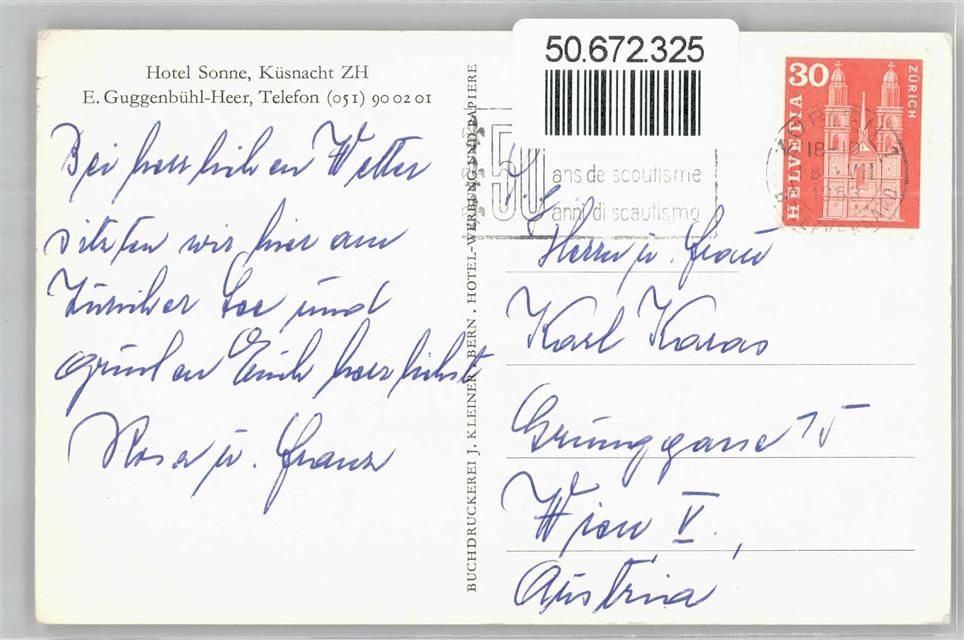 Hotel Sonne, Küsnacht ZH
E. Guggenbühl-Heer, Telefon (051) 90 02 01
Bei herrlichen Wetter
sitzten wir hier am
Züricher See und
grüßen Euch herzlichst
Rosa u. Franz
BUCHDRUCKEREI J. KLEINER BERN . HOTEL-WERBUNG UND PAPIERE
50.672.325
50
ans de scoutisme
anni di scautismo
30
HELVETIA
ZÜRICH
18
Herrn u. Frau
Karl Karas
Grünggasse 15
Wien V.,
Austria